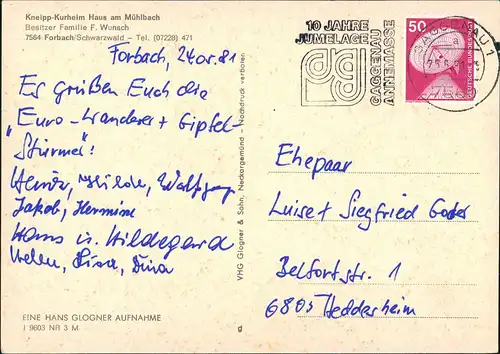 Kneipp-Kurheim Haus am Mühlbach
Besitzer Familie F. Wunsch
7564 Forbach/Schwarzwald – Tel. (07228) 471
10 JAHRE
JUMELAGE
GAGGENAU
ANNEMASSE
50
DEUTSCHE BUNDESPOST
GAGGENAU 1
Forbach,
Es grüßen Euch die
Euro-Wanderer + Gipfel-
"Stürmer"!
Heinz, Hilde, Wolfgang
Jakob, Hermine
Hans u. Hildegard
Helen, Lisa,
VHG Glogner & Sohn, Neckargemünd – Nachdruck verboten
Ehepaar
Luise + Siegfried
Belfortstr. 1
6805 Heddesheim
EINE HANS GLOGNER AUFNAHME
I 9603 NR 3 M
g